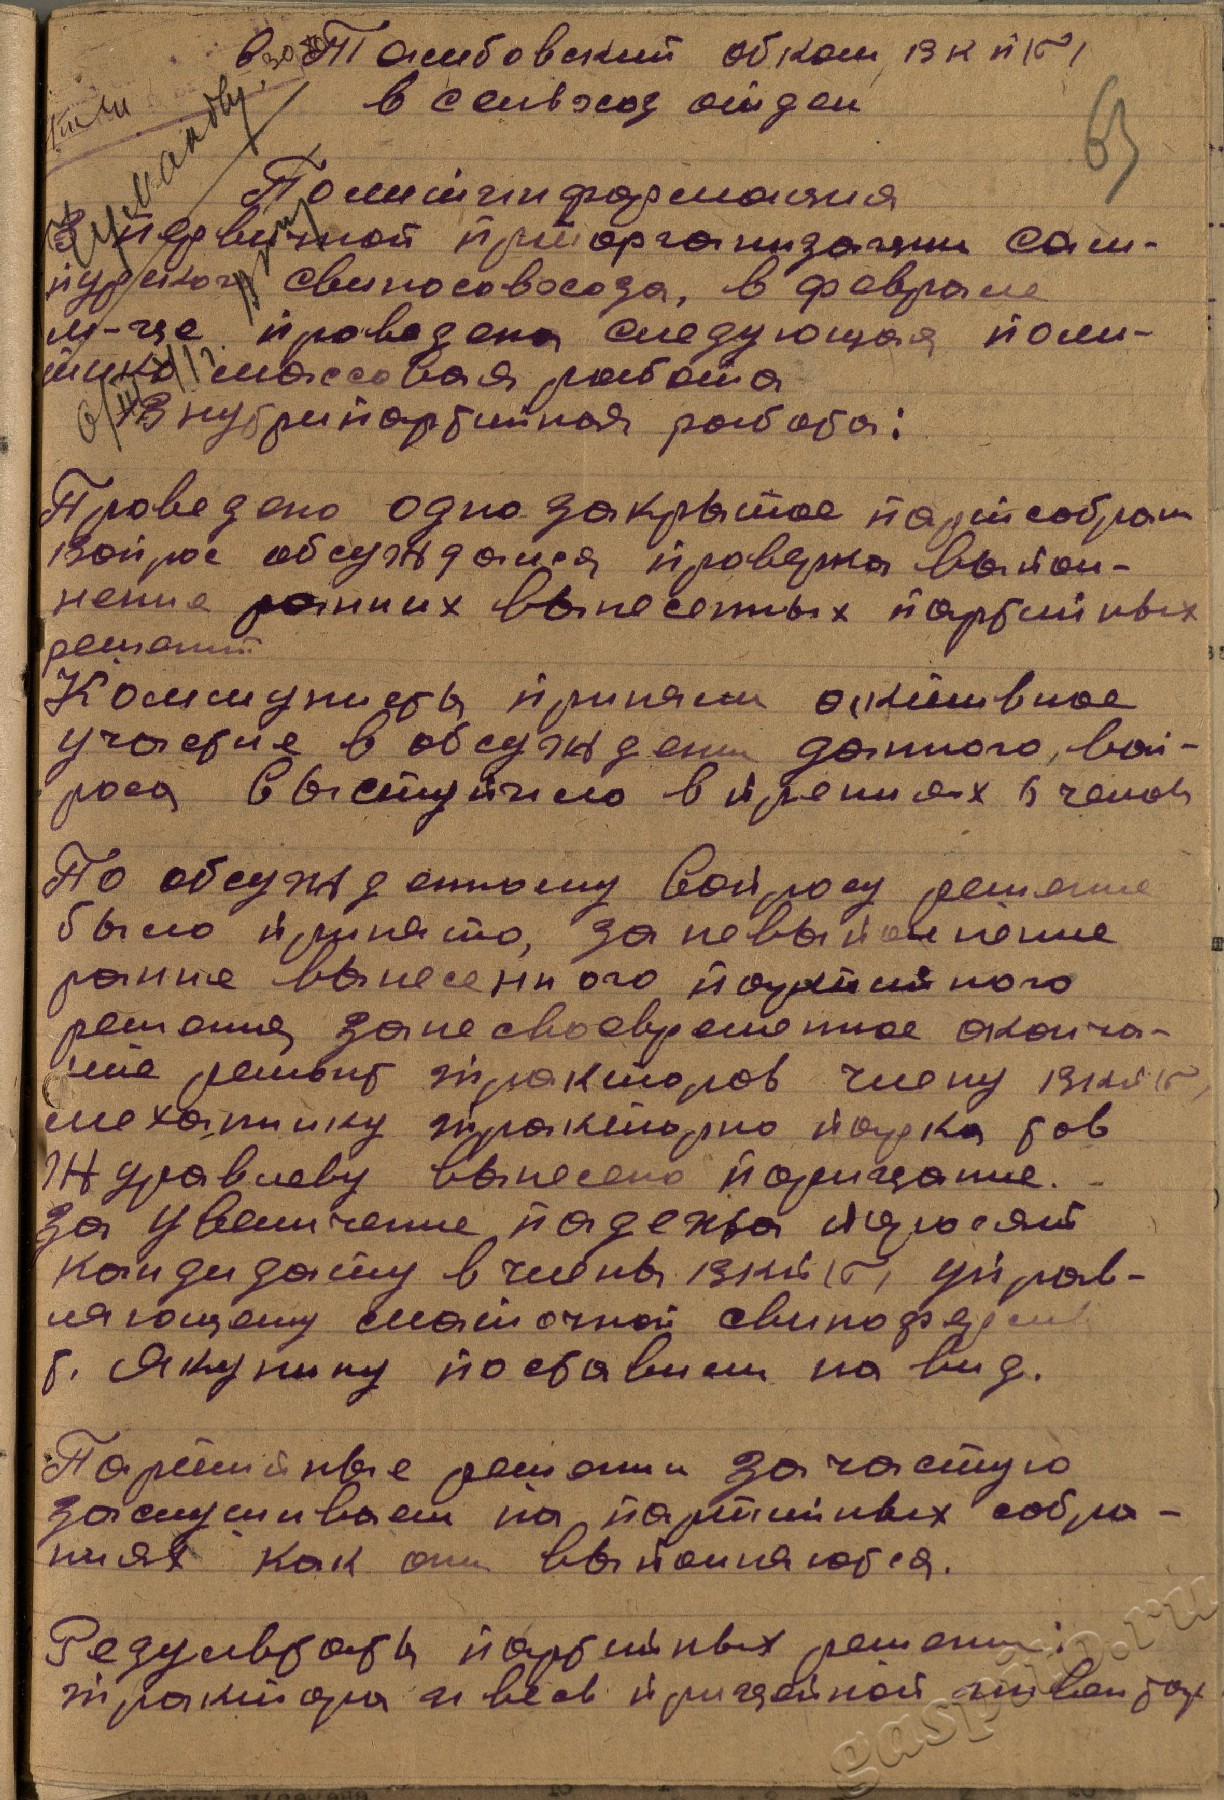 в Тамбовский обком ВКП(б)
в сельхоз отдел
63
Чуманову
Политинформация
В первичной парторганизации Сам-
пурского свиносовхоза, в феврале
м-це проведена следующая поли-
тико массовая работа
Внутрипартийная работа:
Проведено одно закрытое партсобран
вопрос обсуждался проверка выпол-
нение ранних вынесенных партийных
решений
Коммунисты приняли активное
участие в обсуждении данного, воп-
роса выступило в прениях 6 человек
По обсужденному вопросу решение
было принято, за невыполнение
ранне вынесенного партийного
решения за несвоевременное оконча-
ние ремонт тракторов члену ВКП(б)
механику тракторно парка тов
Журавлеву вынесено порицание.
за увеличение падежа поросят
кандидату в члены ВКП(б) управ-
ляющему маточной свинофермы
т. Якунину поставили на вид.
Партийные решении зачастую
заслушиваем на партийных собра-
ниях как они выполняются.
Результаты партийных решении:
трактора и весь прицепной инвентар
gaspito.ru